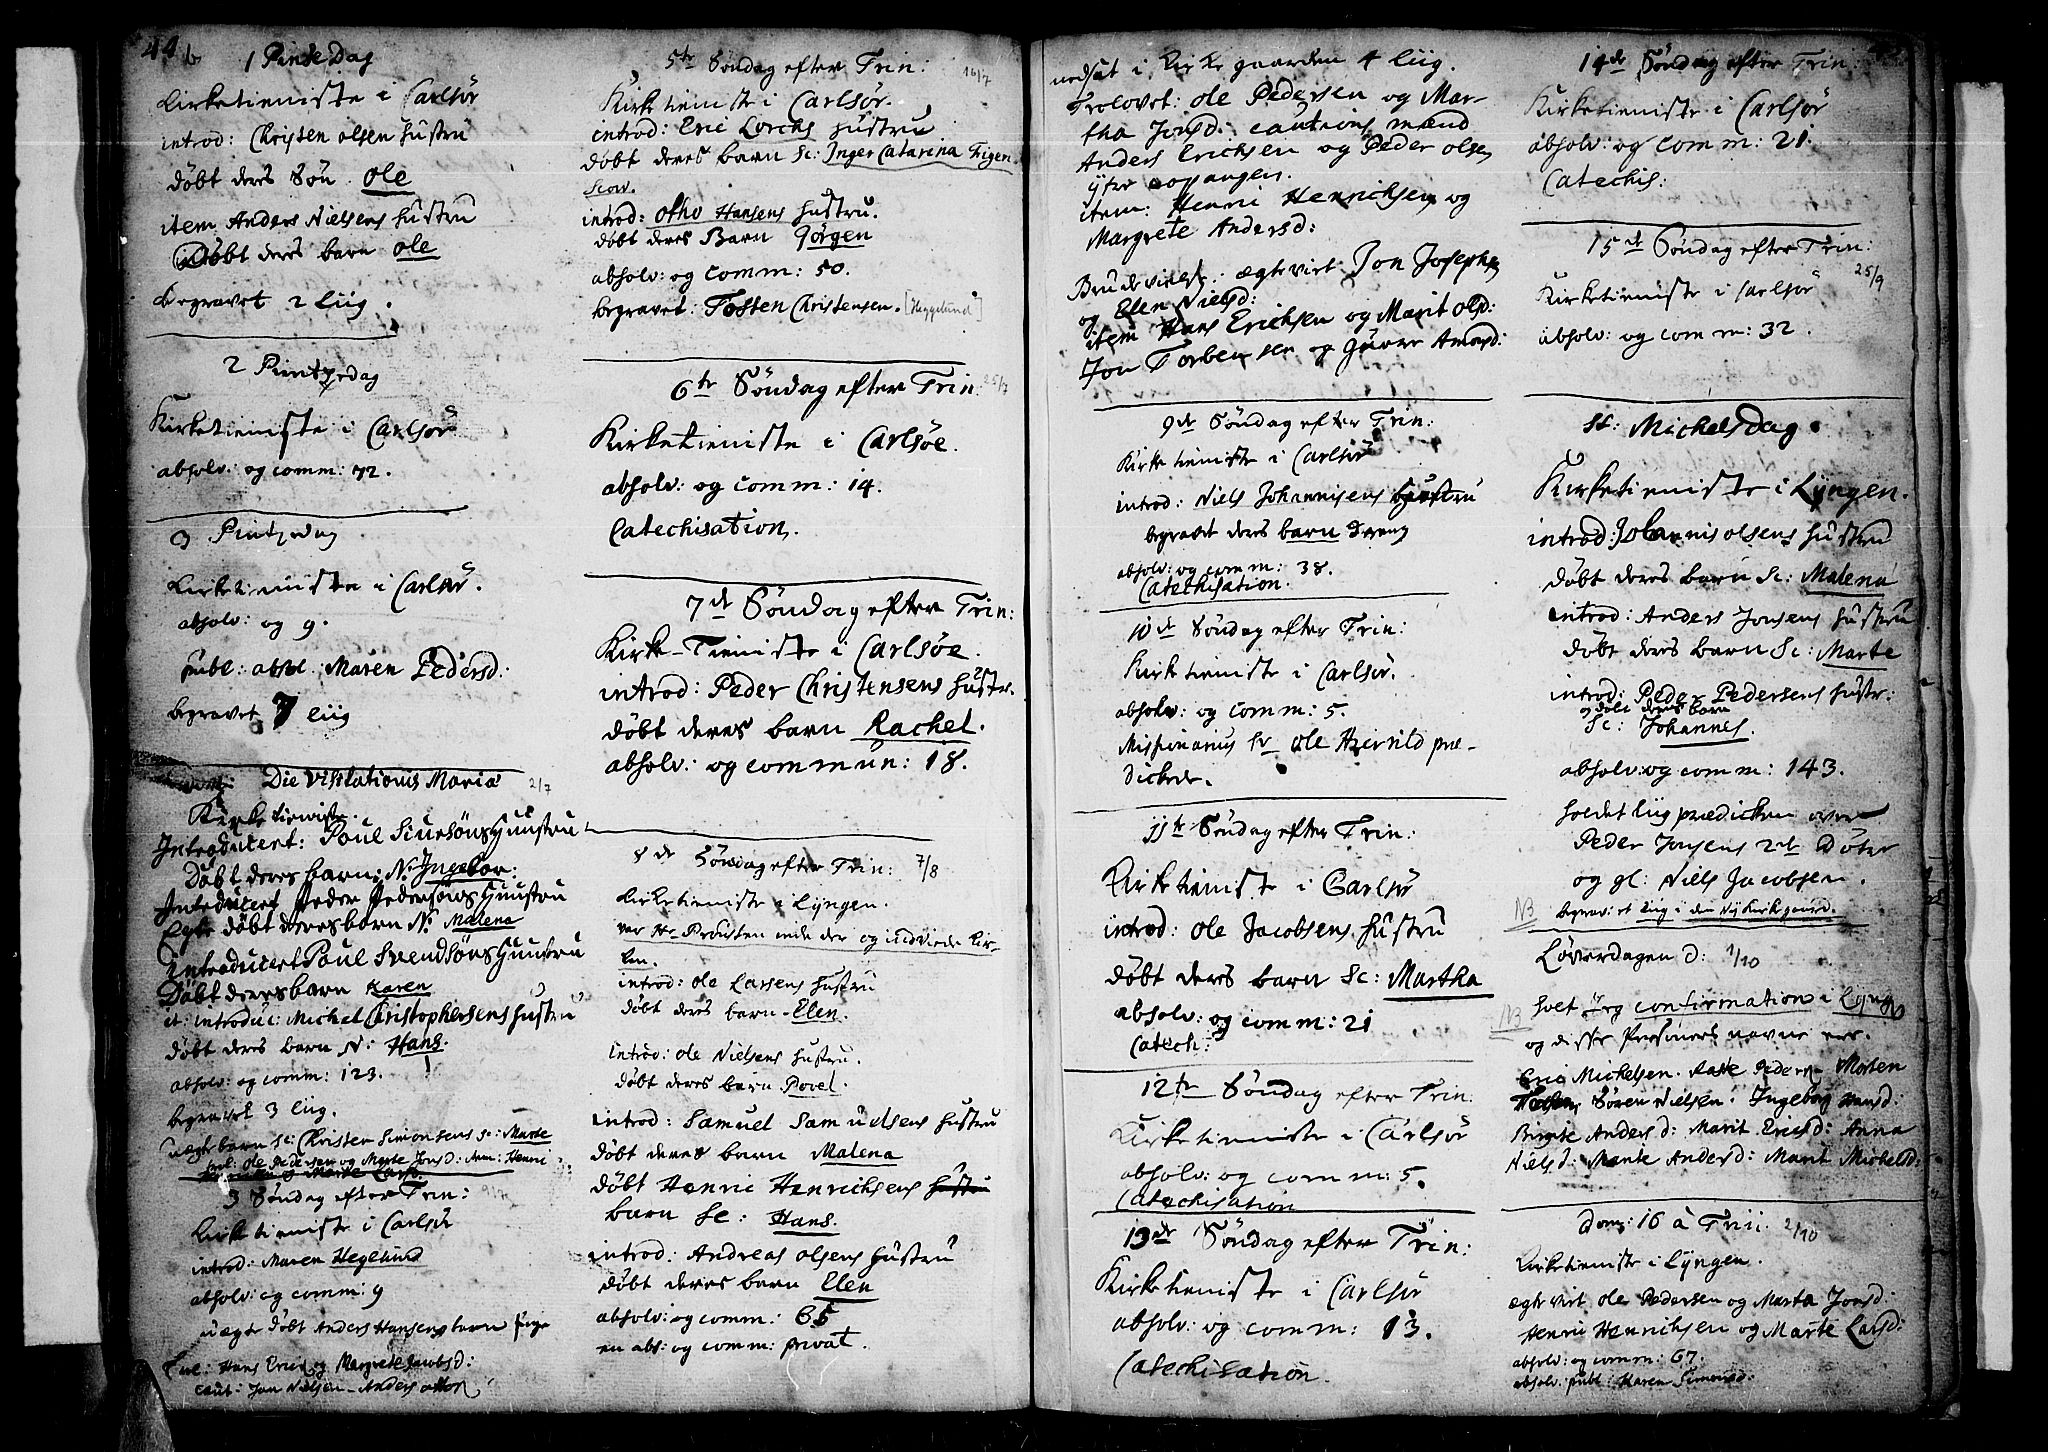 44 b
1 Pinse Dag
Kirketieniste i Carlsör
introd: Christen olsen hustru
döbt deres Sön ole
item Anders Nielsens hustru
Döbt deres barn ole
begravet 2 liig.
2 Pintzedag
Kirketieniste i Carlsör
absolv: og comm: 72.
3 Pintzedag
Kirketieniste i Carlsör.
absolv: og 9.
publ: absol: Maren Pedersd:
begravet 7 liig
Die Visitationis Mariæ 2/7
Kirketieniste.
Introducert: Poul Siursöns Huustru
Döbt deres barn: N: Ingebor:
Introducert Peder Pedersöns Huustru
Egte döbt deres barn N: Malena
introducert Poul Svendsöns Huustru
Döbt deres barn Karen
it: introduc: Michel Christophersens hustru
döbt deres barn N: Hans.
absolv: og comm: 123.
begravet 3 liig.
uægte barn Sc: Christen Simonsens Sc: Marte
trol: ole Pedersen og Marte Jonsd: item: Henri
3 Söndag efter Trin:
Kirketieniste i Carlsör
introd: Maren Hegelund
absolv: og comm: 9
uægte döbt Anders Hansens barn
Trol: Hans Erics og Margrete Jacobsd:
caut: Jon Nielsen - Anders
5te Söndag efter Trin: 16/7
Kirketieniste i Carlsör.
introd: Eric Lorchs hustru
döbt deres barn Sc: Inger Catarina Figen
Scow.
introd: otho Hansens hustru.
döbt deres Barn Jörgen
absolv: og comm: 50.
begravet: Tosten Christensen. [Heggelund]
6te Söndag efter Trin:
Kirketieniste i Carlsöe.
absolv: og comm: 14.
Catechisation.
7de Söndag efter Trin:
Kirke-Tieniste i Carlsöe.
introd: Peder Christensens hustr.
döbt deres barn Rachel.
absolv: og commun: 18.
8de Söndag efter Trin: 7/8
Kirketieniste i Lyngen.
var Hr Prousten inde der og indviede Kir-
ken.
introd: ole Larsens hustru
döbt deres barn - Elen.
introd: ole Nielsens hustru.
döbt deres barn Povel.
introd: Samuel Samuelsens hustru
döbt deres barn Malena
döbt Henric Henrichsens hustru
barn Sc: Hans.
introd: Andreas olsens hustru
döbt deres barn Elen
absolv: og comm: 65
en abs: og comm: privat.
nedsat i Kirkegaarden 4 liig.
Trolovet: ole Pedersen og Mar-
tha Jonsd: cautions mænd
Anders Erichsen og Peder olsen
ytre
item: Henric Henrichsen og
Margrete Andersd:
Brudevielse: ægtevirt Jon Josephs
og Elen Nielsd:
item Hans Erichsen og Marit olsd:
Jon Torbensen og
9de Söndag efter Trin:
Kirketieniste i Carlsör
introd: Niels Johannisens hustru
begravet deres barn
absolv: og comm: 38.
Catechisation.
10de Söndag efter Trin:
Kirketieniste i Carlsör.
absolv: og comm: 5.
Missionarius hr ole Hiersild præ-
dickede.
11te Söndag efter Trin:
Kirketieniste i Carlsör
introd: ole Jacobsens hustru
döbt deres barn Sc: Martha
absolv: og comm: 21
Catech:
12te Söndag efter Trin:
Kirketieniste i Carlsör
absolv: og comm: 5.
Catechisation
13de Söndag efter Trin:
Kirketieniste i Carlsör
absolv: og comm: 13.
Catechisation.
14de Söndag efter Trin:
Kirketieniste i Carlsör
absolv: og comm: 21.
Catechis:
15de Söndag efter Trin:
25/9
Kirketieniste i Carlsör
absolv: og comm: 32.
St: Michelsdag.
Kirketieniste i Lyngen.
introd: Johannis olsens hustru
döbt deres barn Sc: Malena
introd: Anders Jonsens hustru
döbt deres barn Sc: Marte
introd: Peder Pedersens hustr:
og döbt deres barn
Sc: Johannes.
absolv: og comm: 143.
holdet liig prædicken over
Peder Jonsens 2de Döter
og gl: Niels Jacobsen.
NB begravet liig i den Ny Kirkegaard.
Löverdagen d: 1/10
NB holt Jeg confirmation i Lyngen
og disse Personers navne ere.
Eric Michelsen. Peders Morten
Sören Nielsen: Ingeborg Hansd:
Birgite Andersd: Marit Ericsd: Anna
Nielsd: Marite Andersd: Marit Michelsd:
Dom: 16 à Trin: 2/10
Kirketieniste i Lyngen.
ægtevirt ole Pedersen og Marta Jonsd:
Henric Henrichsen og Marte Larsd:
absolv: og comm: 67.
absolv: publ: Karen Simonsd: